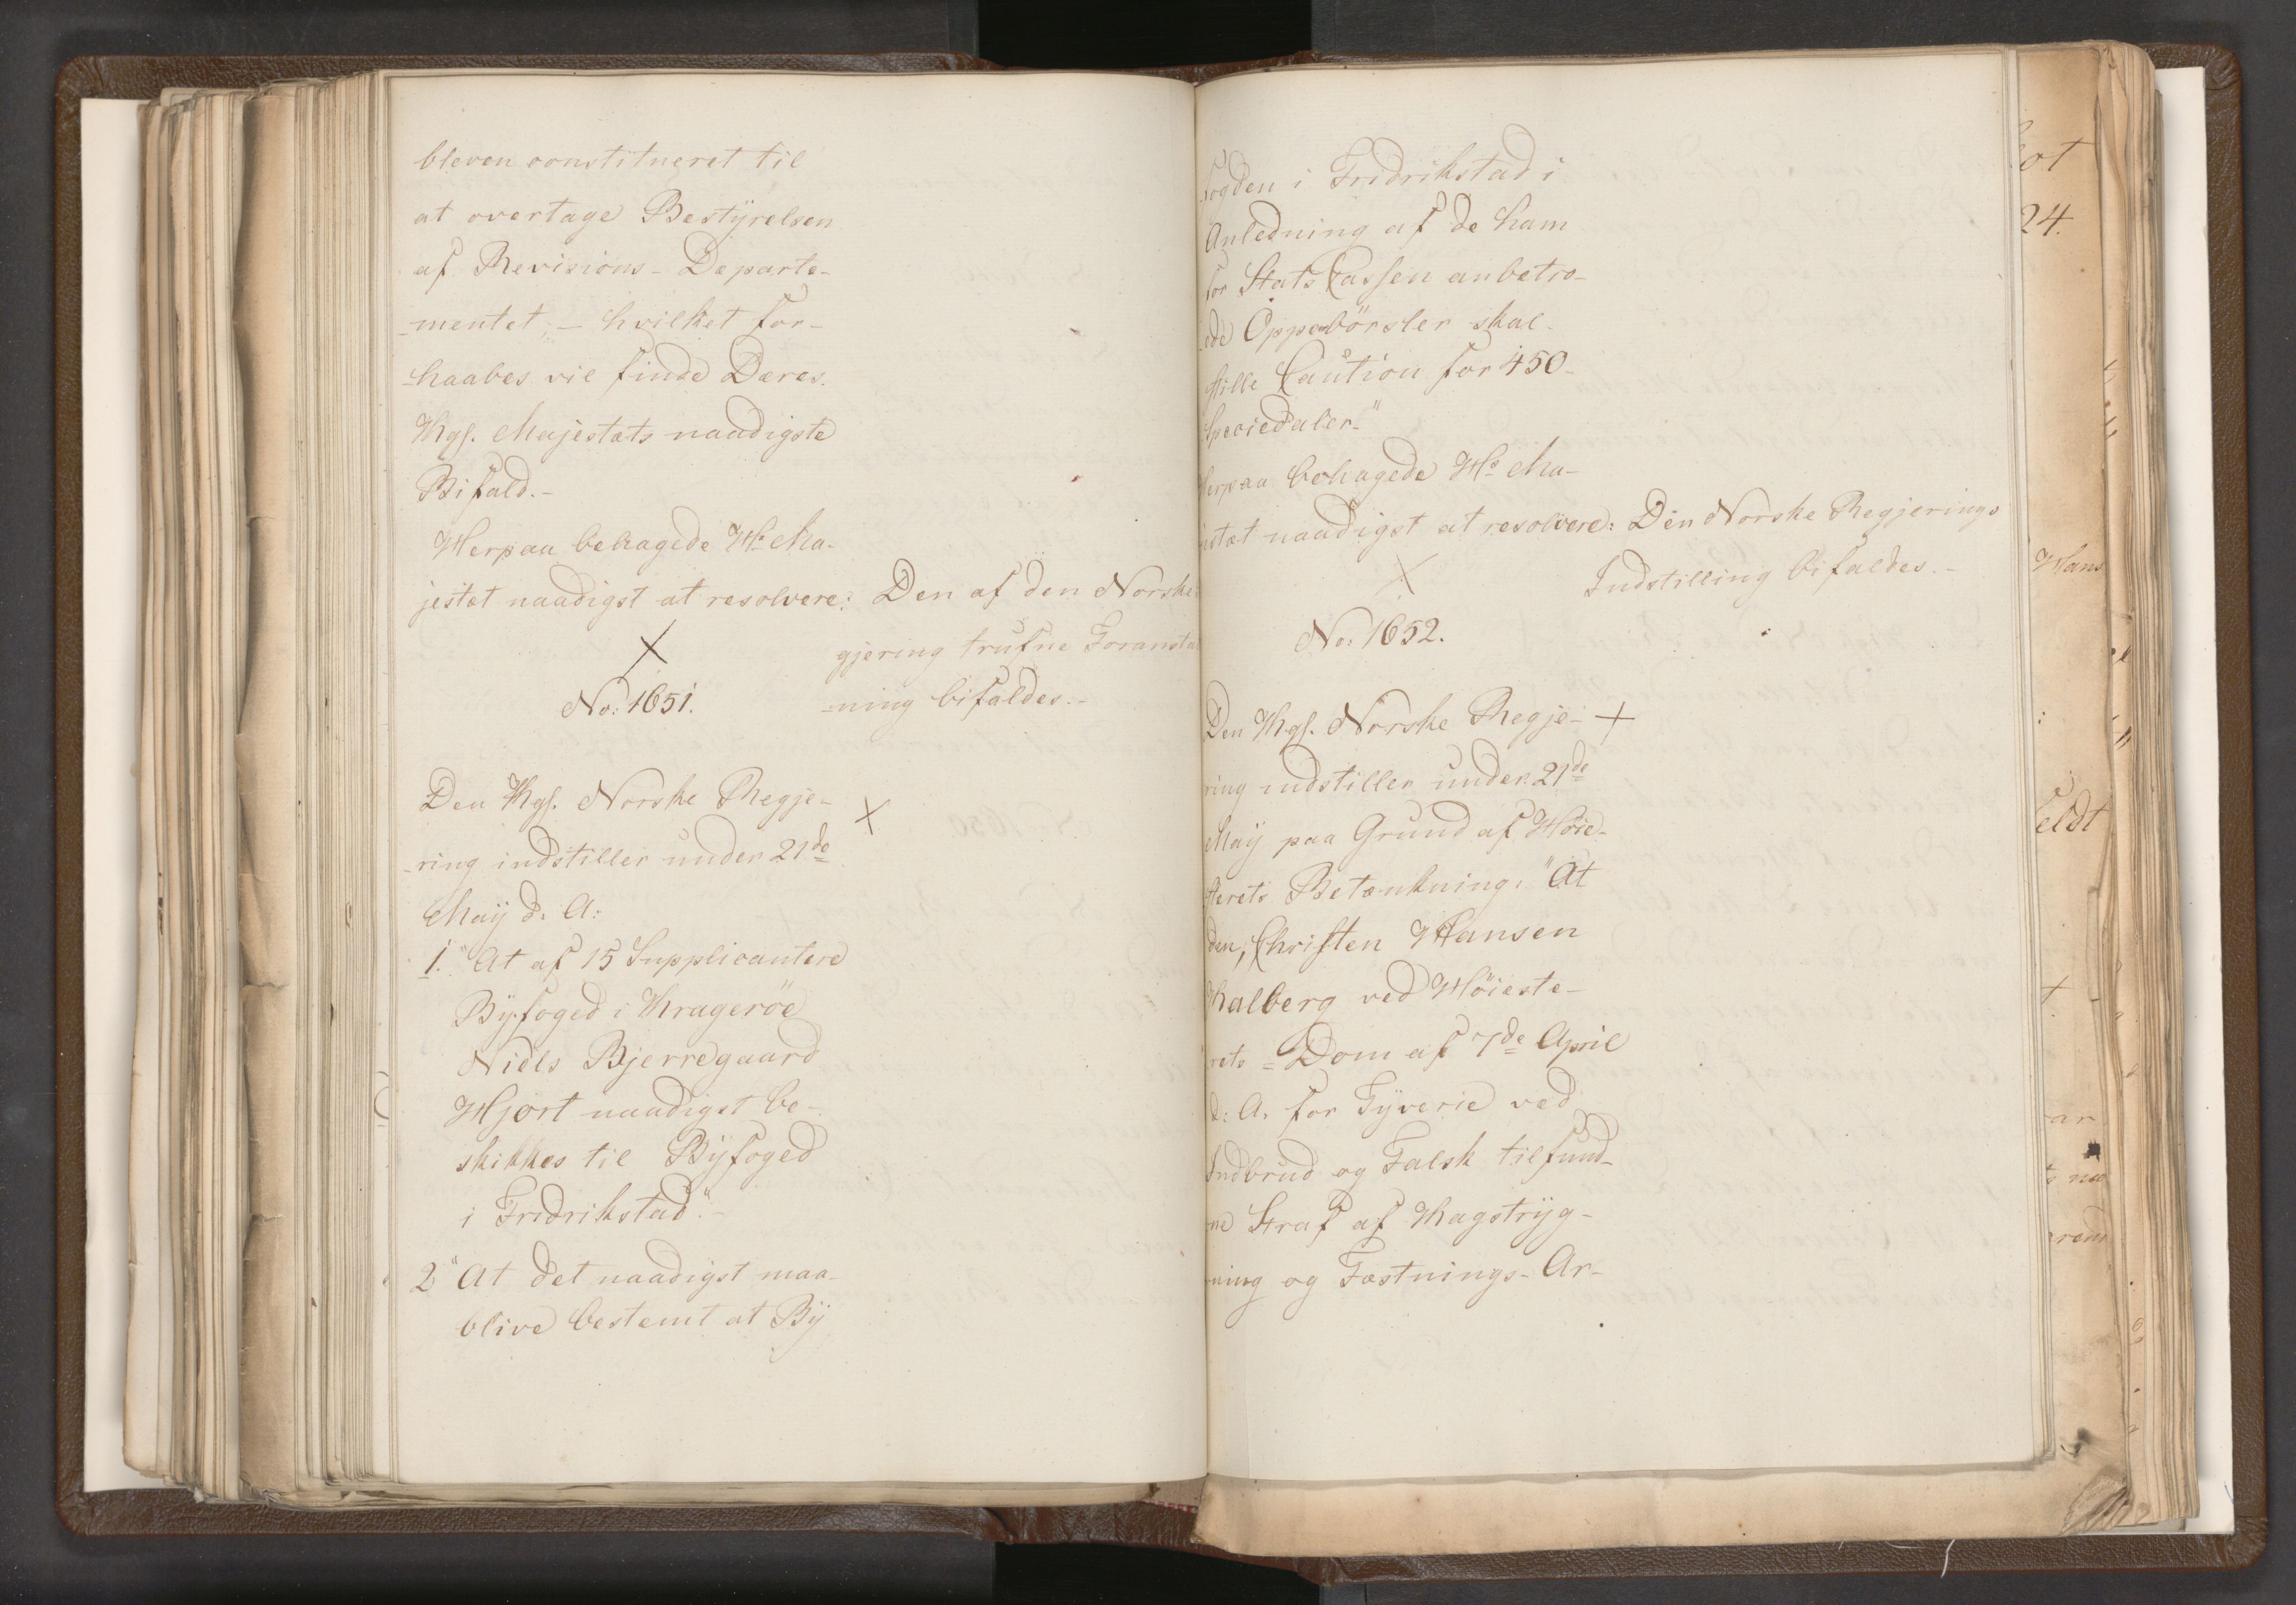 bleven constitueret til
at overtage Bestÿrelsen
af Revisions-Departe-
-mentet, - hvilket for-
-haabes vil finde Deres
Kgl. Majestæts naadigste
Bifald.-
Herpaa behagede Hs Ma-
jestæt naadigst at resolvere: Den af den Norske
gjering trufne Foransta
-ning bifaldes.-
No: 1651.
Den Kgl. Norske Regje-
-ring indstiller under 21de
Maÿ d. A:
1. "At af 15 Supplicantere
Bÿfoged i Krageröe
Niels Bjerregaard
Hjort naadigst be-
skikkes til Bÿfoged
i Fridrikstad".-
2 "At det naadigst maa-
blive bestemt at Bÿ
fogden i Fridrikstad i
Anledning af de ham
for Stats Cassen anbetro-
ede Oppebörsler skal
stille Caution for 450
Speciedaler-"
Herpaa behagede Hs Ma-
jestæt naadigst at resolvere: Den Norske Regjerings
Indstilling bifaldes.-
No: 1652.
Den Kgl. Norske Regje-
ring indstiller under 21de
Maÿ paa Grund af Höie-
sterets Betænkning: "At
den, Christen Hansen
Kalberg ved Höieste-
rets-Dom af 7de April
d: A. for Tÿverie ved
Indbrud og Falsk tilfund-
ne Straf af Kagstrÿg-
ning og Fæstnings-Ar-
24.
Hans
feldt